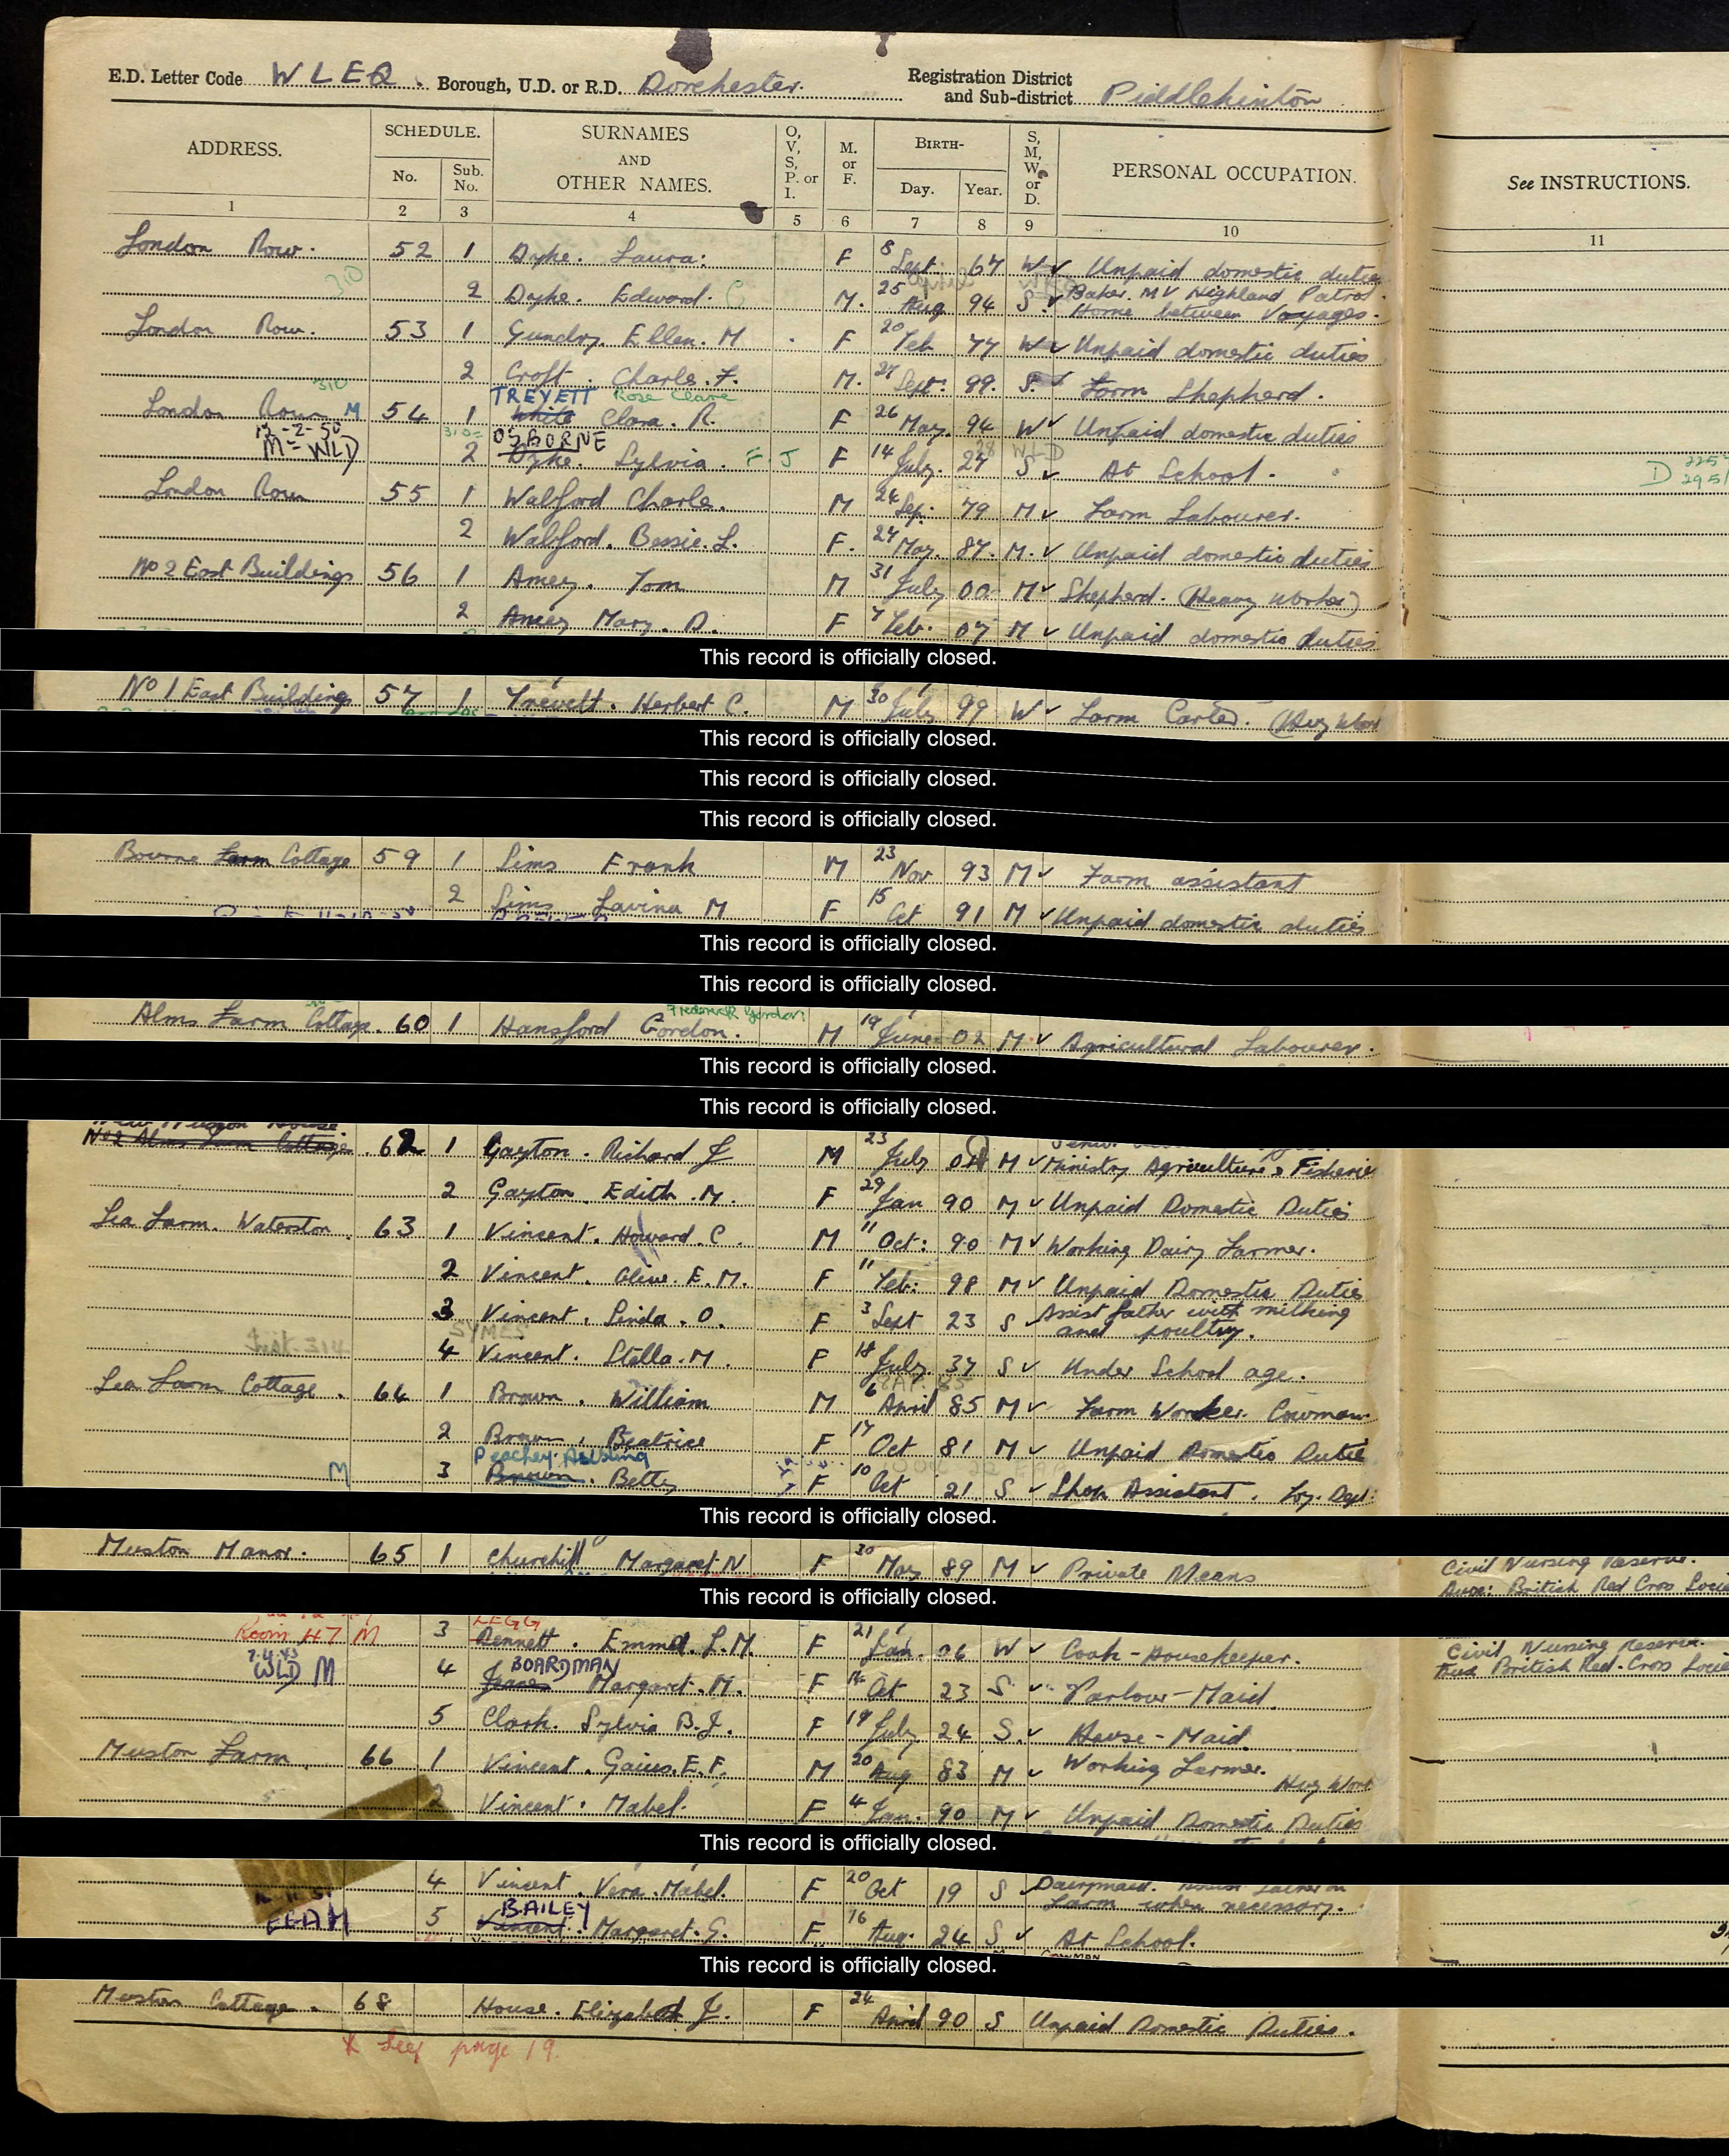 E.D. Letter Code WLEQ. Borough, U.D. or R.D. Dorchester. Registration District and Sub-district Piddlehinton
ADDRESS. SCHEDULE. No. Sub. No. SURNAMES AND OTHER NAMES. O, V, S, P. or I. M. or F. BIRTH- Day. Year. S, M, W, or D. PERSONAL OCCUPATION. See INSTRUCTIONS.
1 2 3 4 5 6 7 8 9 10 11
London Row. 52 1 Dyke. Laura. F 8 Sept. 67 W Unpaid domestic duties
310 2 Dyke. Edward. C M. 25 Aug 94 S Baker. MV Highland Patrol.
Home between Voyages.
London Row. 53 1 Gundry. Ellen. M F 20 Feb 77 W Unpaid domestic duties
2 Croft. Charle. F. M. 27 Sept. 99. S. Farm Shepherd.
310 TREVETT Rose Clare
London Row M 54 1 White Clara. R. F 26 May. 94 W Unpaid domestic duties
M = WLD OSBORNE
2 Dyke. Sylvia. F J F 14 July. 27 28 S WLD At School. D
London Row 55 1 Walsford Charle. M 24 Sep. 79 M Farm Labourer.
2 Walsford. Bessie. L. F. 27 May. 87. M. Unpaid domestic duties
No 2 East Buildings 56 1 Amey. Tom M 31 July 00 M Shepherd. (Heavy Worker)
2 Amey Mary. D. F 7 Feb. 07 M Unpaid domestic duties
This record is officially closed.
No 1 East Buildings 57 1 Trevett. Herbert C. M 30 July 99 W Farm Carter. (Hvy Work
This record is officially closed.
This record is officially closed.
This record is officially closed.
Bourne Farm Cottage 59 1 Sims Frank M 23 Nov 93 M Farm assistant
2 Sims Lavina M F 15 Oct 91 M Unpaid domestic duties
This record is officially closed.
This record is officially closed.
Frederick Gordon
Alms Farm Cottage. 60 1 Hansford Gordon. M 19 June 02 M Agricultural Labourer.
This record is officially closed.
This record is officially closed.
No 2 Alms Farm Cottage 62 1 Gayton. Richard J M 23 July 04 M Ministry Agriculture & Fisherie
2 Gayton. Edith. M. F 29 Jan 90 M Unpaid Domestic Duties
Lea Farm. Waterston. 63 1 Vincent. Howard. C. M 11 Oct. 90 M Working Dairy Farmer.
2 Vincent. Olive. E. M. F 11 Feb. 98 M Unpaid Domestic Duties
3 Vincent. Linda. O. F 3 Sept 23 S Assist father with milking
and poultry.
SYMES
4 Vincent. Stella. M. F 18 July. 37 S Under School age.
Lea Farm Cottage. 64 1 Brown. William M 6 April 85 M Farm Worker. Cowman
2 Brown. Beatrice F 17 Oct 81 M Unpaid Domestic Dutie
Peachey
M 3 Brown. Betty F 10 Oct 21 S Shop Assistant.
This record is officially closed.
Muston Manor. 65 1 Churchill Margaret. N F 30 May 89 M Private Means Civil Nursing Reserve.
British Red Cross Socie
This record is officially closed.
LEGG
Room 47 M 3 Bennett. Emma. L. M. F 21 Jan. 06 W Cook-Housekeeper. Civil Nursing Reserve.
7.4.43 BOARDMAN British Red. Cross Socie
WLD M 4 Margaret. M. F Oct 23 S Parlour-Maid.
5 Clark. Sylvia B. J. F 19 July 24 S. House-Maid.
Muston Farm. 66 1 Vincent. Gaius. E. F. M 20 Aug 83 M Working Farmer. Hvy Work
2 Vincent. Mabel. F 4 Jan. 90 M Unpaid Domestic Duties
This record is officially closed.
4 Vincent. Vera. Mabel. F 20 Oct 19 S Dairymaid. Assist father on
Farm when necessary.
BAILEY
5 Vincent. Margaret. G. F 16 Aug. 24 S At School.
This record is officially closed.
Muston Cottage. 68 House. Elizabeth J. F 24 April 90 S Unpaid Domestic Duties.
X See page 19.